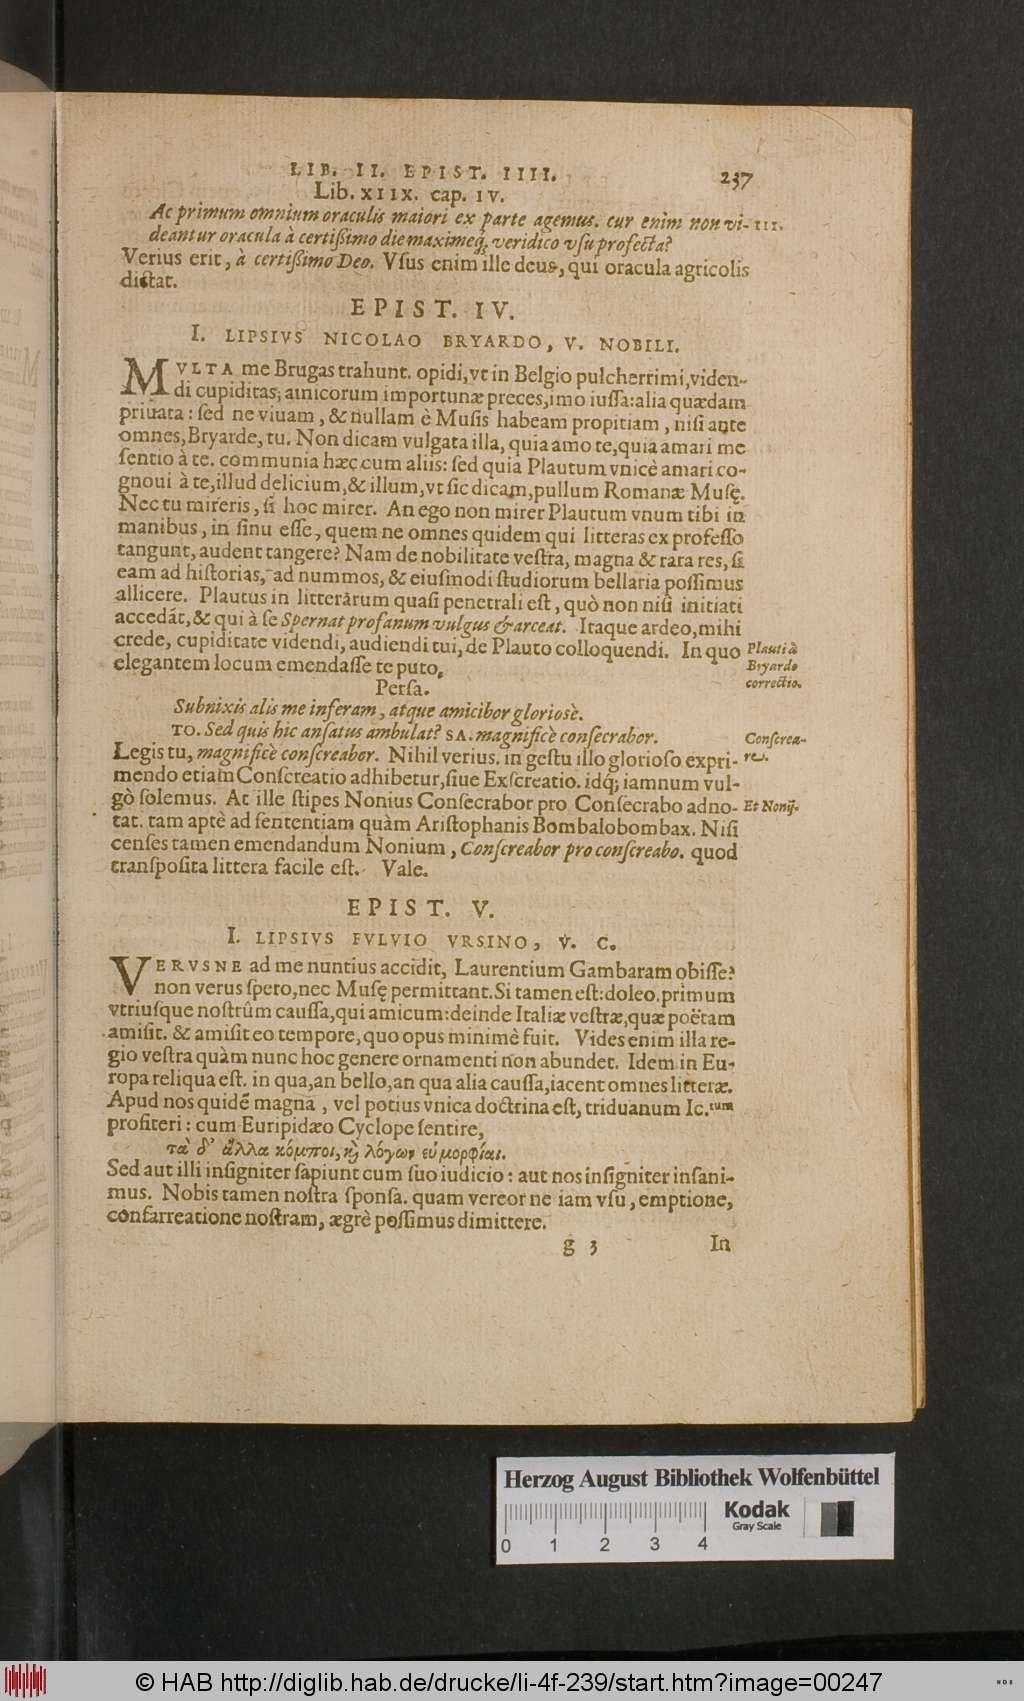 LIB. II. EPIST. IIII. 237
Lib. XIIX. cap. IV.
Ac primum omnium oraculis maiori ex parte agemus. cur enim non vi- III.
deantur oracula à certißimo die maximeq́; veridico vsu profecta?
Verius erit, à certißimo Deo. Vsus enim ille deus, qui oracula agricolis
dictat.
EPIST. IV.
I. LIPSIVS NICOLAO BRYARDO, V. NOBILI.
MVLTA me Brugas trahunt. opidi, vt in Belgio pulcherrimi, viden-
di cupiditas; amicorum importunæ preces, imo iussa: alia quædam
priuata: sed ne viuam, & nullam è Musis habeam propitiam, nisi ante
omnes, Bryarde, tu. Non dicam vulgata illa, quia amo te, quia amari me
sentio à te. communia hæc cum aliis: sed quia Plautum vnicè amari co-
gnoui à te, illud delicium, & illum, vt sic dicam, pullum Romanæ Musę.
Nec tu mireris, si hoc mirer. An ego non mirer Plautum vnum tibi in
manibus, in sinu esse, quem ne omnes quidem qui litteras ex professo
tangunt, audent tangere? Nam de nobilitate vestra, magna & rara res, si
eam ad historias, ad nummos, & eiusmodi studiorum bellaria possimus
allicere. Plautus in litterarum quasi penetrali est, quò non nisi initiati
accedāt, & qui à se Spernat profanum vulgus & arceat. Itaque ardeo, mihi
crede, cupiditate videndi, audiendi tui, de Plauto colloquendi. In quo Plauti à
elegantem locum emendasse te puto, Bryardo
correctio.
Persa.
Subnixis alis me inferam, atque amicibor gloriosè.
TO. Sed quis hic ansatus ambulat? SA. magnificè consecrabor. Conscrea-
Legis tu, magnificè conscreabor. Nihil verius. in gestu illo glorioso expri- re.
mendo etiam Conscreatio adhibetur, siue Exscreatio. idq́; iamnum vul-
gò solemus. At ille stipes Nonius Consecrabor pro Consecrabo adno- Et Nonij.
tat. tam aptè ad sententiam quàm Aristophanis Bombalobombax. Nisi
censes tamen emendandum Nonium, Conscreabor pro conscreabo. quod
transposita littera facile est. Vale.
EPIST. V.
I. LIPSIVS FVLVIO VRSINO, V. C.
VERVSNE ad me nuntius accidit, Laurentium Gambaram obisse?
non verus spero, nec Musę permittant. Si tamen est: doleo. primum
vtriusque nostrûm caussa, qui amicum: deinde Italiæ vestræ, quæ poëtam
amisit. & amisit eo tempore, quo opus minimè fuit. Vides enim illa re-
gio vestra quàm nunc hoc genere ornamenti non abundet. Idem in Eu-
ropa reliqua est. in qua, an bello, an qua alia caussa, iacent omnes litteræ.
Apud nos quidē magna, vel potius vnica doctrina est, triduanum Ic.tum
profiteri: cum Euripidæo Cyclope sentire,
τὰ δ' ἄλλα κόμποι, κϳ λόγων εὐμορφίαι.
Sed aut illi insigniter sapiunt cum suo iudicio: aut nos insigniter insani-
mus. Nobis tamen nostra sponsa. quam vereor ne iam vsu, emptione,
confarreatione nostram, ægrè possimus dimittere.
g 3 In
Herzog August Bibliothek Wolfenbüttel
Kodak
Gray Scale
0 1 2 3 4
© HAB http://diglib.hab.de/drucke/li-4f-239/start.htm?image=00247